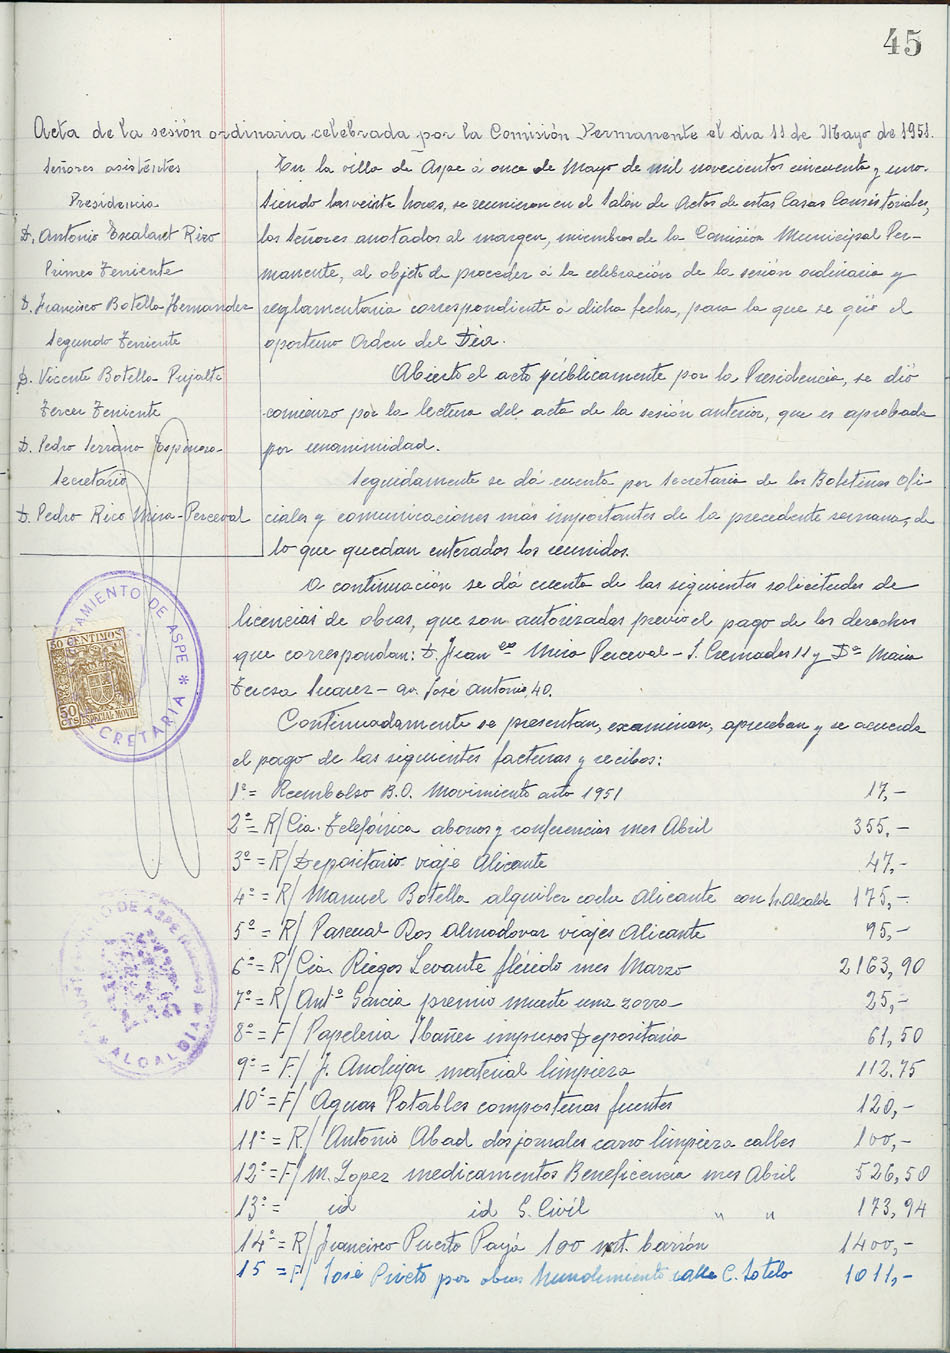 45
Acta de la sesión ordinaria celebrada por la Comisión Permanente el dia 11 de Mayo de 1951.
Señores asistentes
Presidencia
D. Antonio Escalaret Rizo
Primer Teniente
D. Francisco Botella Hernandez
Segundo Teniente
D. Vicente Botella Pujalte
Tercer Teniente
D. Pedro Serrano Espinosa
Secretario
D. Pedro Rico Mira-Perceval
En la villa de Aspe á once de Mayo de mil novecientos cincuenta y uno.
Siendo las veinte horas, se reunieron en el Salón de Actos de estas Casas Consistoriales,
los Señores anotados al margen, miembros de la Comisión Municipal Per-
manente, al objeto de proceder á la celebración de la sesión ordinaria y
reglamentaria correspondiente á dicha fecha, para la que se giró el
oportuno Orden del Dia.
Abierto el acto públicamente por la Presidencia, se dió
comienzo por la lectura del acta de la sesión anterior, que es aprobada
por unanimidad.
Seguidamente se dá cuenta por Secretaria de los Boletines Ofi-
ciales y comunicaciones más importantes de la precedente semana, de
lo que quedan enterados los reunidos.
A continuación se dá cuenta de las siguientes solicitudes de
licencias de obras, que son autorizadas previo el pago de los derechos
que correspondan: D. Fran co Mira Perceval - S. Cremades 11 y Dª Maria
Teresa Suarez - av. José Antonio, 40.
Continuadamente se presentan, examinan, aprueban y se acuerda
el pago de las siguientes facturas y recibos:
1º = Reembolso B.O. Movimiento año 1951 17,-
2º = R/ Cia. Telefónica abonos y conferencias mes Abril 355,-
3º = R/ Depositario viaje Alicante 47,-
4º = R/ Manuel Botella alquiler coche Alicante con Sr. Alcalde 175,-
5º = R/ Pascual Ros Almodovar viajes Alicante 95,-
6º = R/ Cia. Riegos Levante flúido mes Marzo 2163,90
7º = R/ Antº Garcia premio muerte una zorra 25,-
8º = F/ Papeleria Ibañez impresos Depositaria 61,50
9º = F/ J. Andujar material limpieza 112.75
10º = F/ Aguas Potables composturas fuentes 120,-
11º = R/ Antonio Abad dos jornales carro limpieza calles 100,-
12º = F/ M. Lopez medicamentos Beneficencia mes Abril 526,50
13º = id id G. Civil " " 173,94
14º = R/ Francisco Puerto Payá 100 mt. barrón 1400,-
15 = F/ José Prieto por obras hundimiento calle C. Sotelo 1011,-
AYUNTAMIENTO DE ASPE * SECRETARIA *
50 CENTIMOS
50 CTS ESPECIAL MOVIL
AYUNTAMIENTO DE ASPE (Alicante) * ALCALDIA *